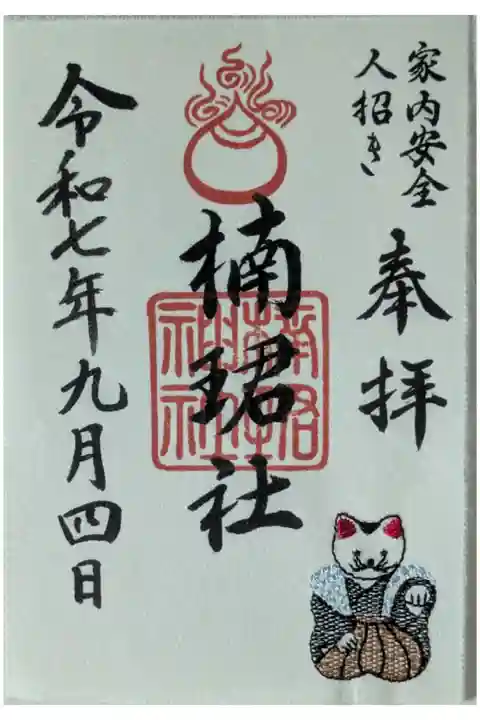 家内安全
人招き
奉拝
楠珺社
楠珺社
神社
令和七年九月四日